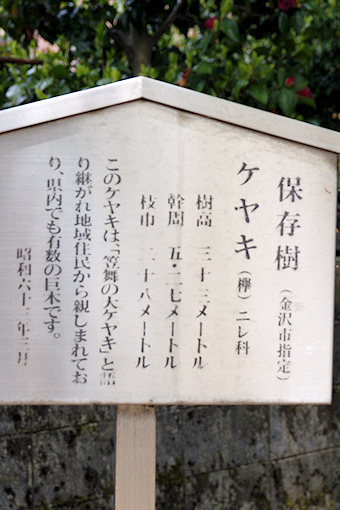 保存樹（金沢市指定）
ケヤキ（欅）ニレ科
樹高　三十三メートル
幹周　五・二七メートル
枝巾　二十八メートル
このケヤキは、「笠舞の大ケヤキ」と語
り継がれ地域住民から親しまれてお
り、県内でも有数の巨木です。
昭和六十二年三月